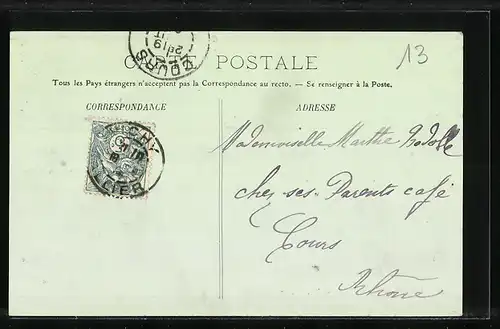 13
CARTE POSTALE
COURS
2e 19
Tous les Pays étrangers n'acceptent pas la Correspondance au recto. — Se renseigner à la Poste.
CORRESPONDANCE
ADRESSE
VICHY
ALLIER
Mademoiselle Marthe
chez ses Parents café
Cours
Rhône